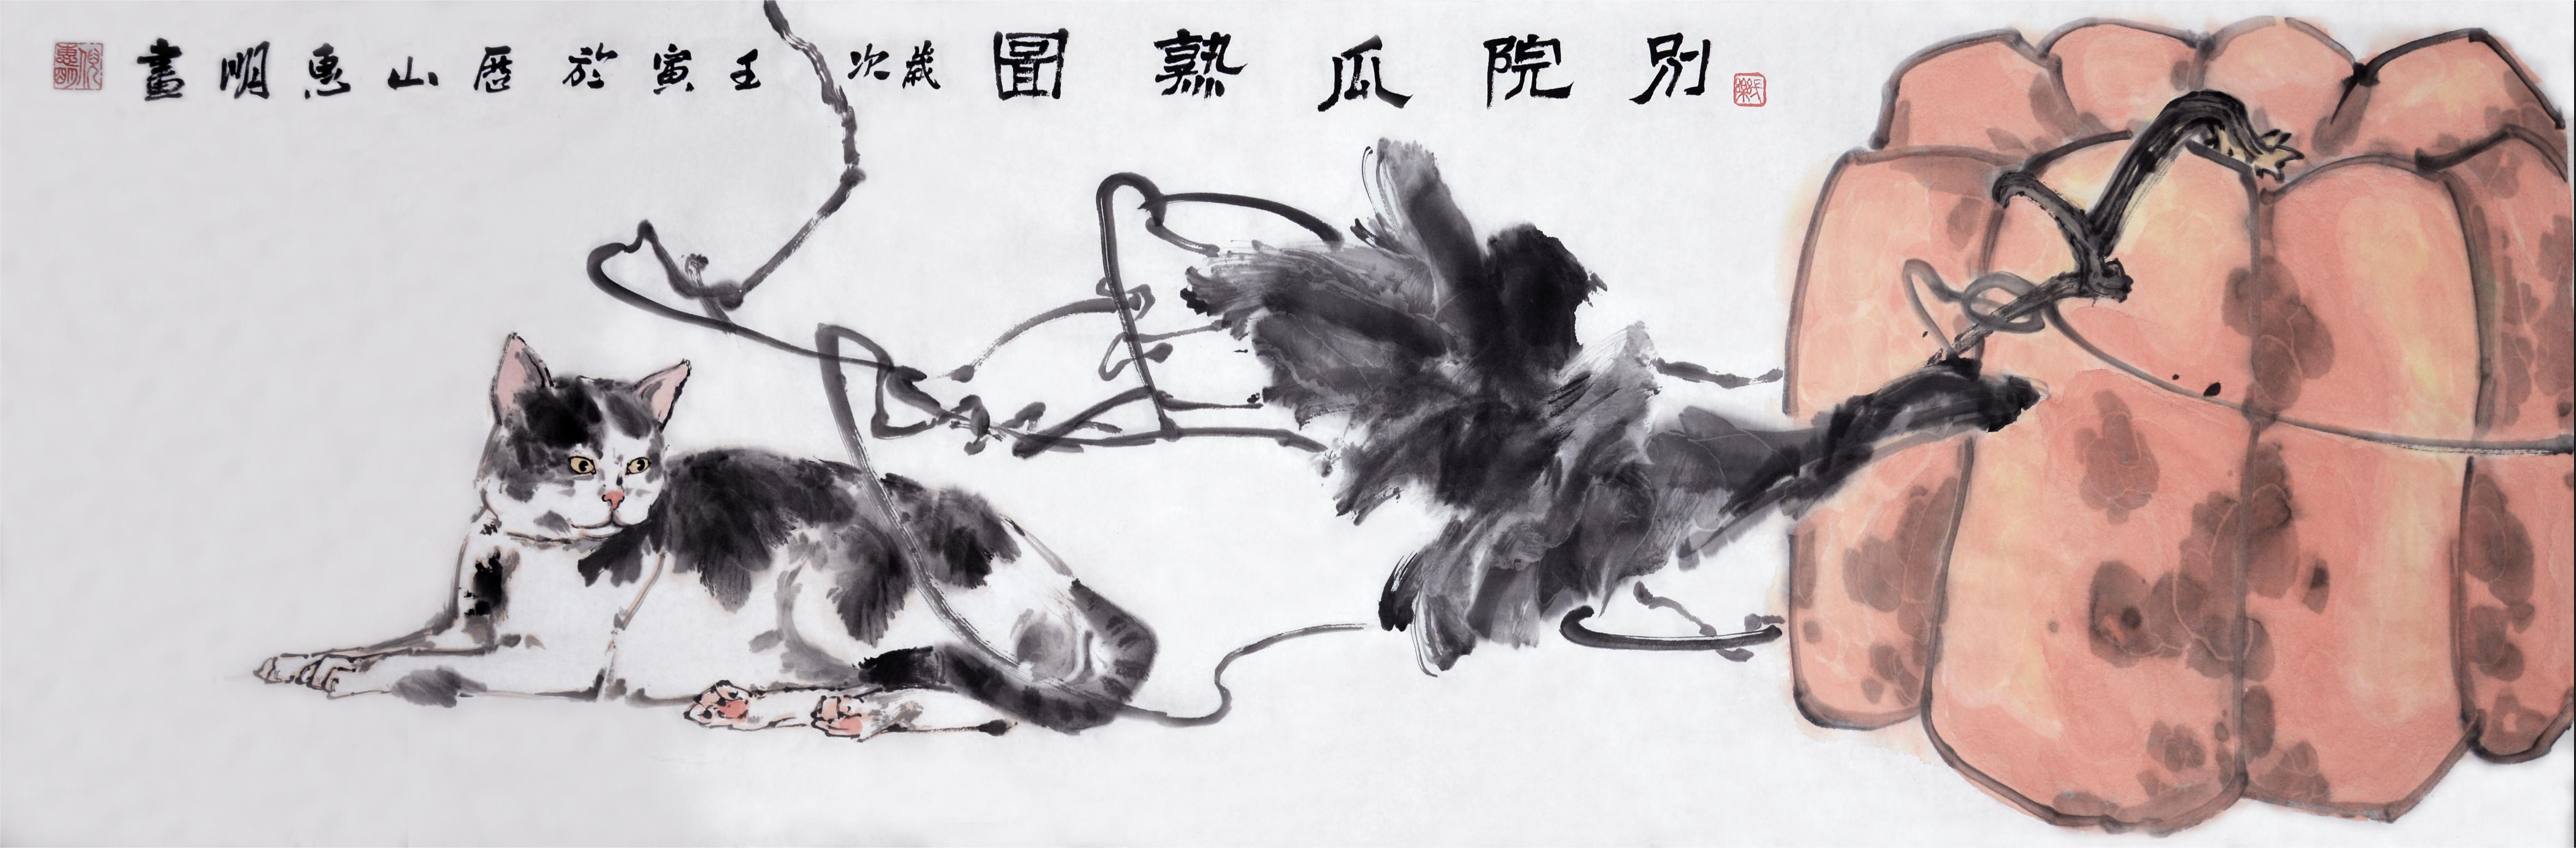 別院瓜熟圖
歲次壬寅於歷山惠明畫